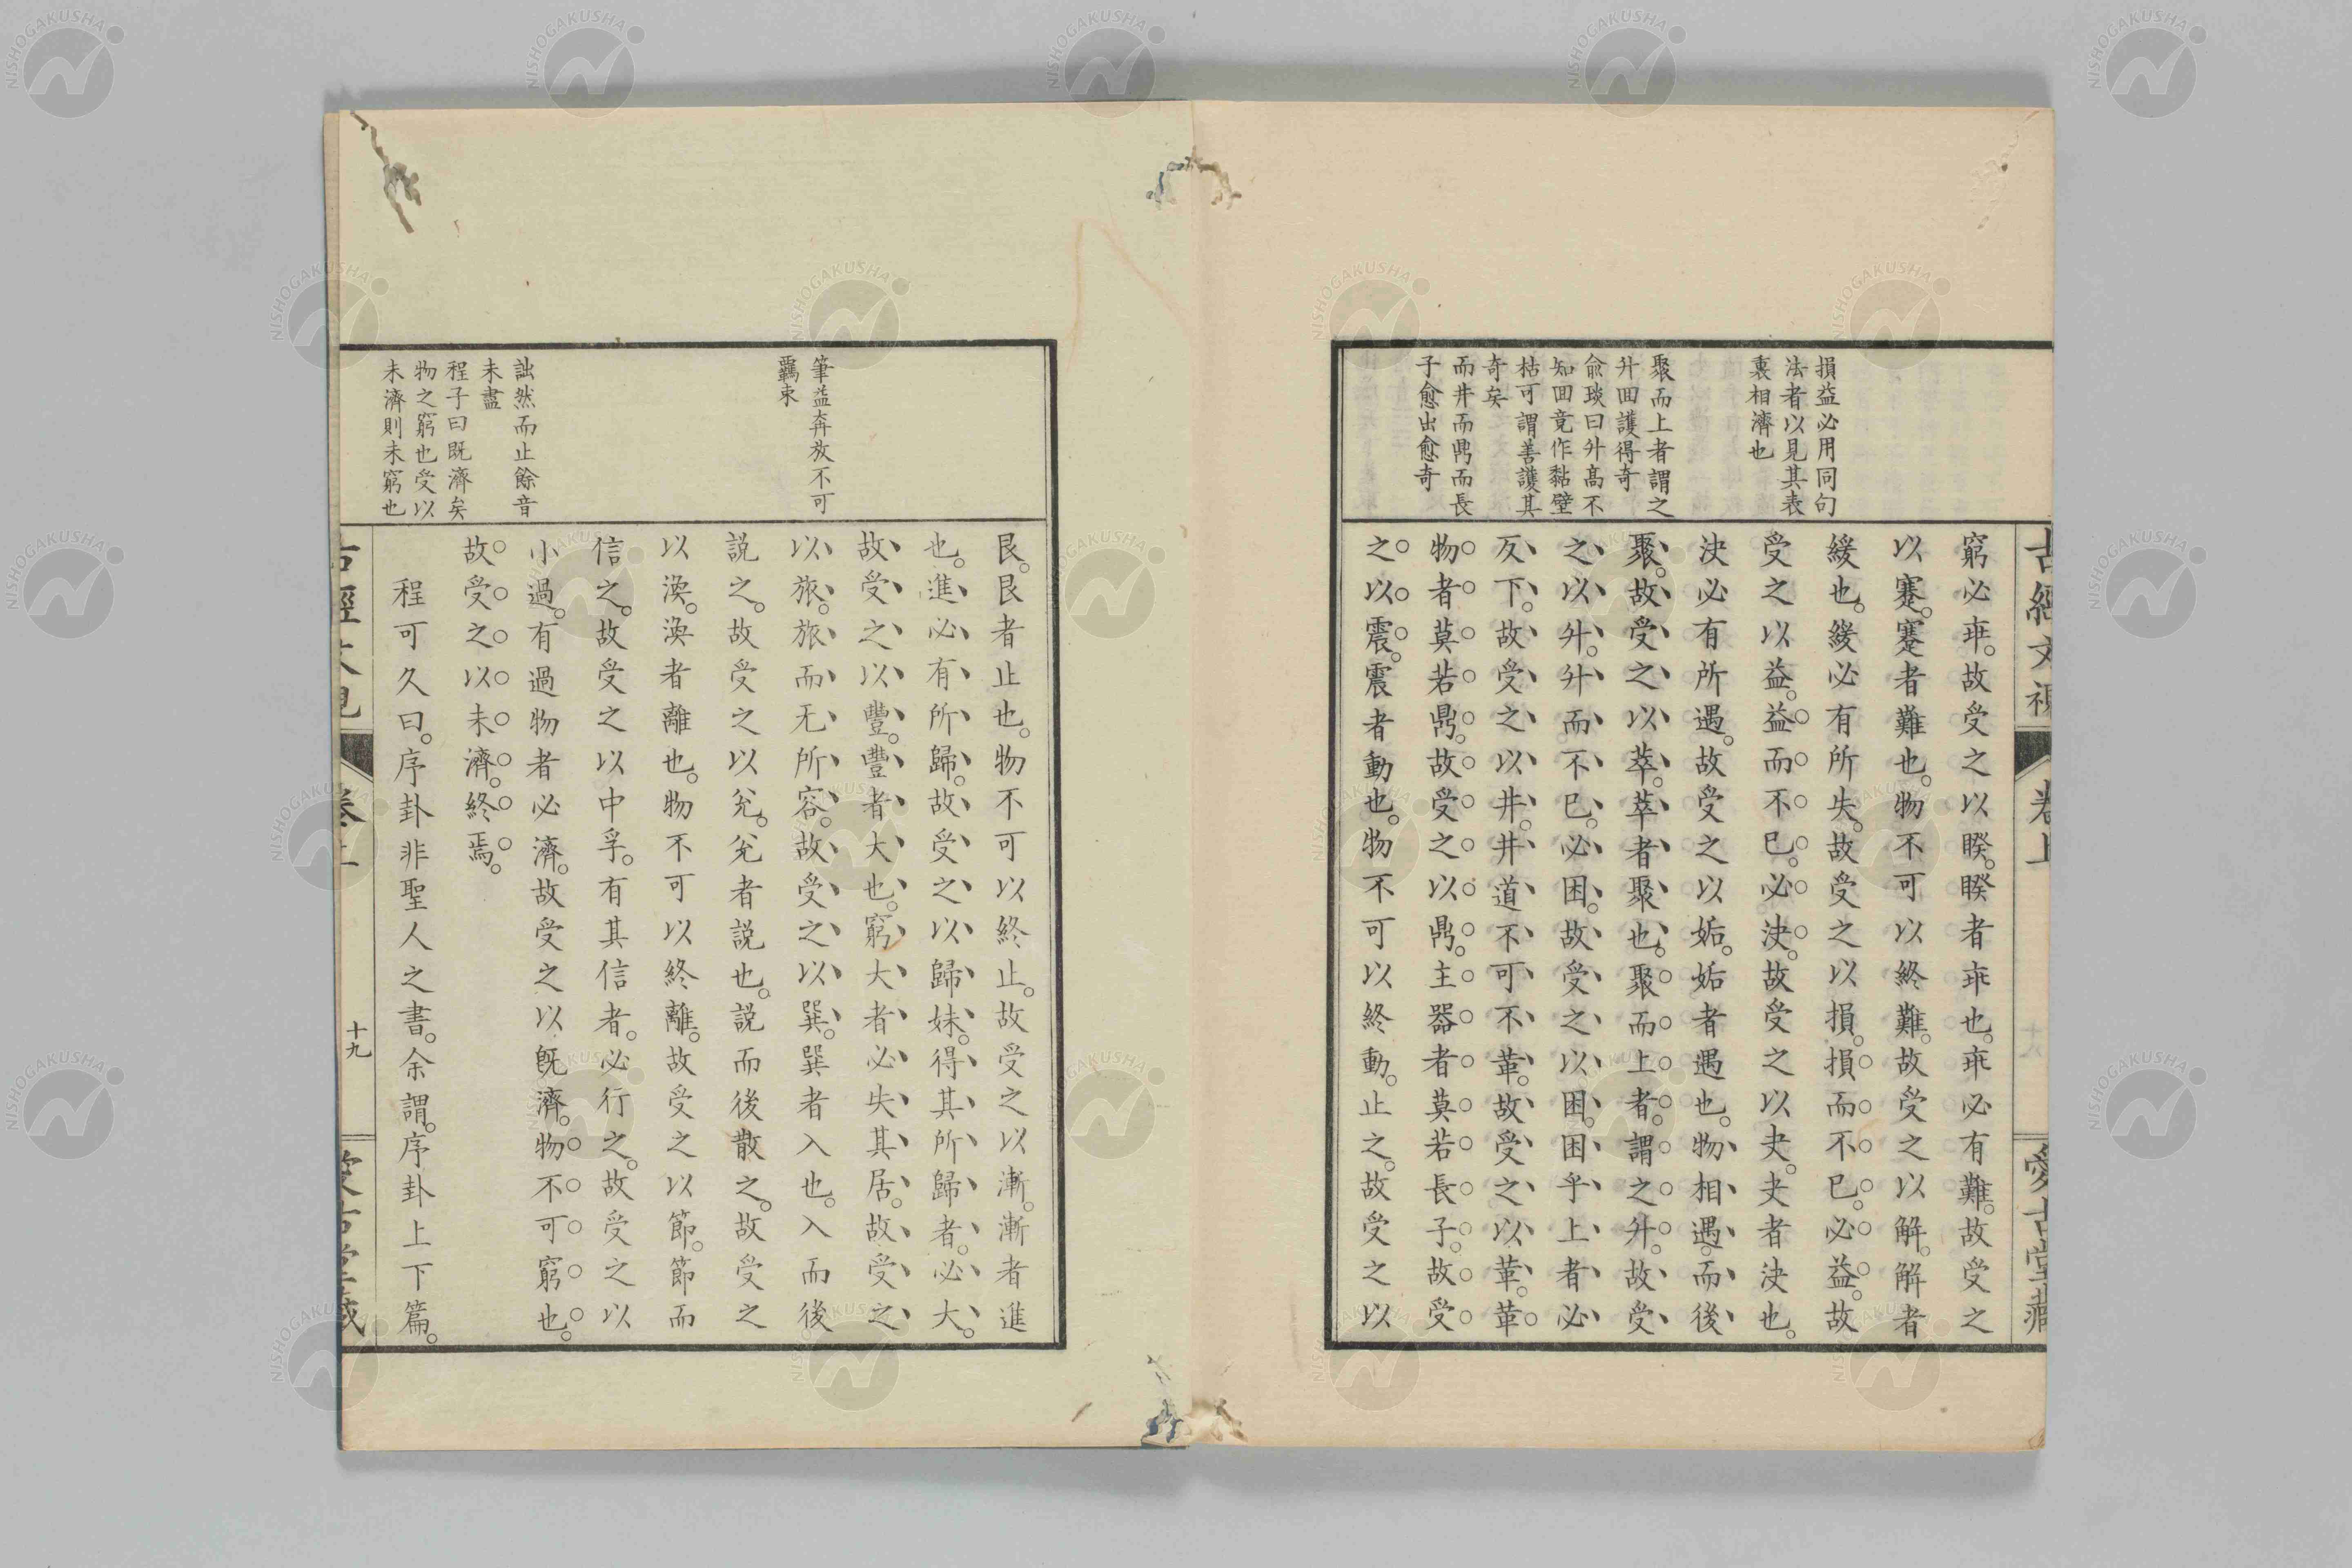 損益必用同句
法者以見其表
裏相濟也
聚而上者謂之
升回護得奇
俞琰曰升高不
知回竟作黏壁
枯可謂善護其
奇矣
而井而鼎而長
子愈出愈奇
卷上
愛古堂藏
窮必乖。故受之以睽。睽者乖也。乖必有難。故受之
以蹇。蹇者難也。物不可以終難。故受之以解。解者
緩也。緩必有所失。故受之以損。損而不已。必益。故
受之以益。益而不已。必決。故受之以夬。夬者決也。
決必有所遇。故受之以姤。姤者遇也。物相遇。而後
聚。故受之以萃。萃者聚也。聚而上者。謂之升。故受
之以升。升而不已。必困。故受之以困。困乎上者必
反下。故受之以井。井道不可不革。故受之以革。革
物者莫若鼎。故受之以鼎。主器者莫若長子。故受
之以震。震者動也。物不可以終動。止之。故受之以
筆益奔放不可
覊束
詘然而止餘音
未盡
程子曰既濟矣
物之窮也受以
未濟則未窮也
艮。艮者止也。物不可以終止。故受之以漸。漸者進
也。進必有所歸。故受之以歸妹。得其所歸者。必大。
故受之以豐。豐者大也。窮大者必失其居。故受之
以旅。旅而无所容。故受之以巽。巽者入也。入而後
説之。故受之以兌。兌者説也。説而後散之。故受之
以渙。渙者離也。物不可以終離。故受之以節。節而
信之。故受之以中孚。有其信者。必行之。故受之以
小過。有過物者必濟。故受之以既濟。物不可窮也。
故受之以未濟。終焉。
程可久曰。序卦非聖人之書。余謂。序卦上下篇。
十九